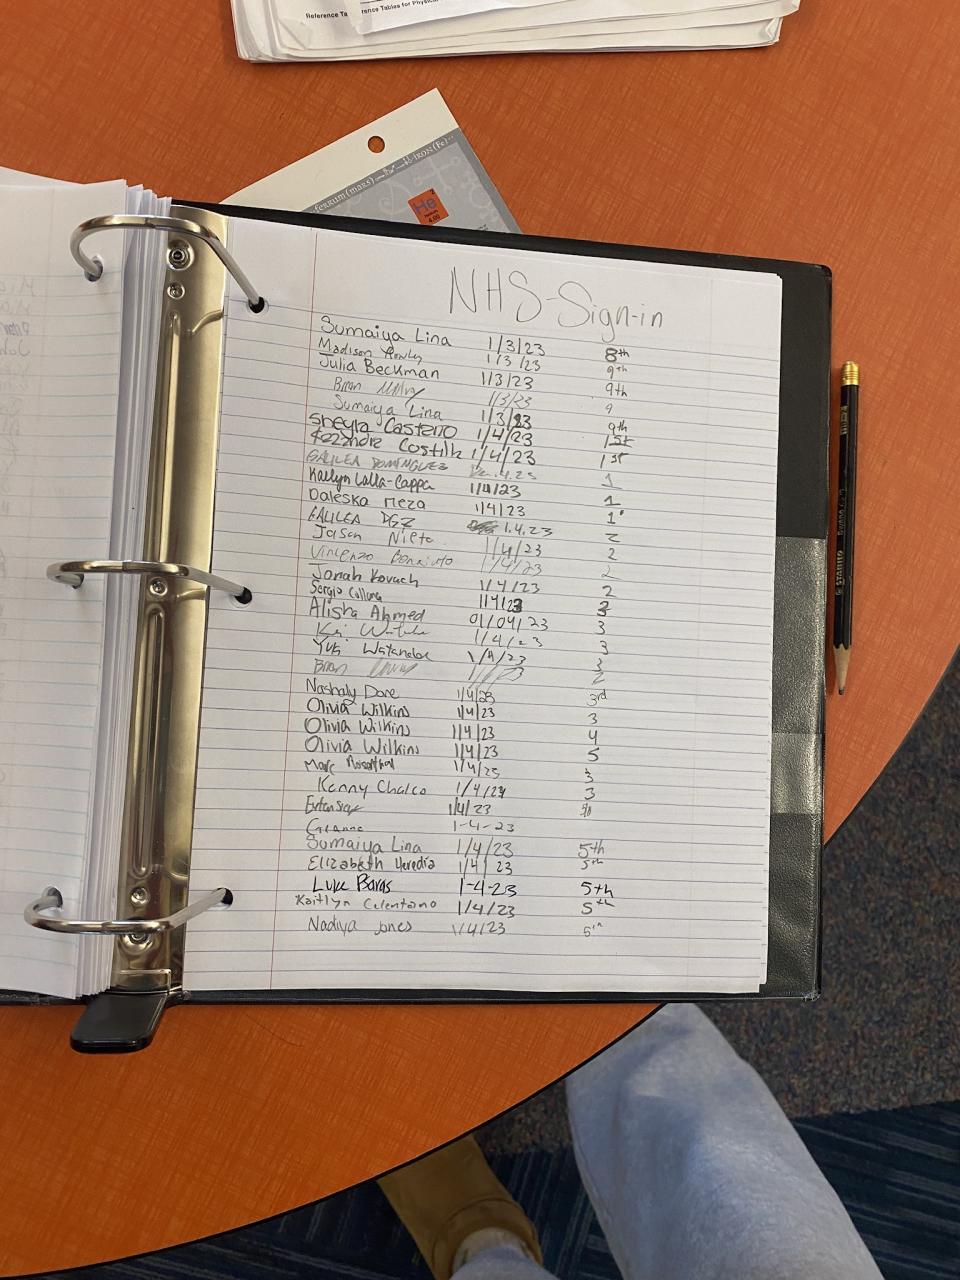 Reference Ta
rence Tables for Physical
FERRUM (MARS)
IRON (Fe)
2
He
4.00
NHS-Sign-in
Sumaiya Lina 1/3/23 8th
Madison 1/3/23 9th
Julia Beckman 1/3/23 9th
Brian 1/3/23 9
Sumaiya Lina 1/3/23 9th
Sheyla Casterio 1/4/23 1st
Costilla 1/4/23 1st
GALILEA DOMINGUEZ 1
Kaitlyn Lalla-Cappa 1/4/23 1
Daleska Meza 1/4/23 1
GALILEA DGZ 1.4.23 2
Jason Nieto 1/4/23 2
Vincenzo Bonaiuto 1/4/23 2
Jonah Kovach 1/4/23 2
Sergio 1/4/23 3
Alisha Ahmed 01/04/23 3
1/4/23 3
Yuki Watanabe 1/4/23 3
Brian 2
Nashaly Dore 1/4/23 3rd
Olivia Wilkins 1/4/23 3
Olivia Wilkins 1/4/23 4
Olivia Wilkins 1/4/23 5
Marc Rosenthal 1/4/23 3
Kenny Chalco 1/4/23 3
1/4/23
1-4-23
Sumaiya Lina 1/4/23 5th
Elizabeth Heredia 1/4/23 5th
Luke Baras 1-4-23 5th
Kaitlyn Celentano 1/4/23 5th
Nadiya Jones 1/4/23 5th